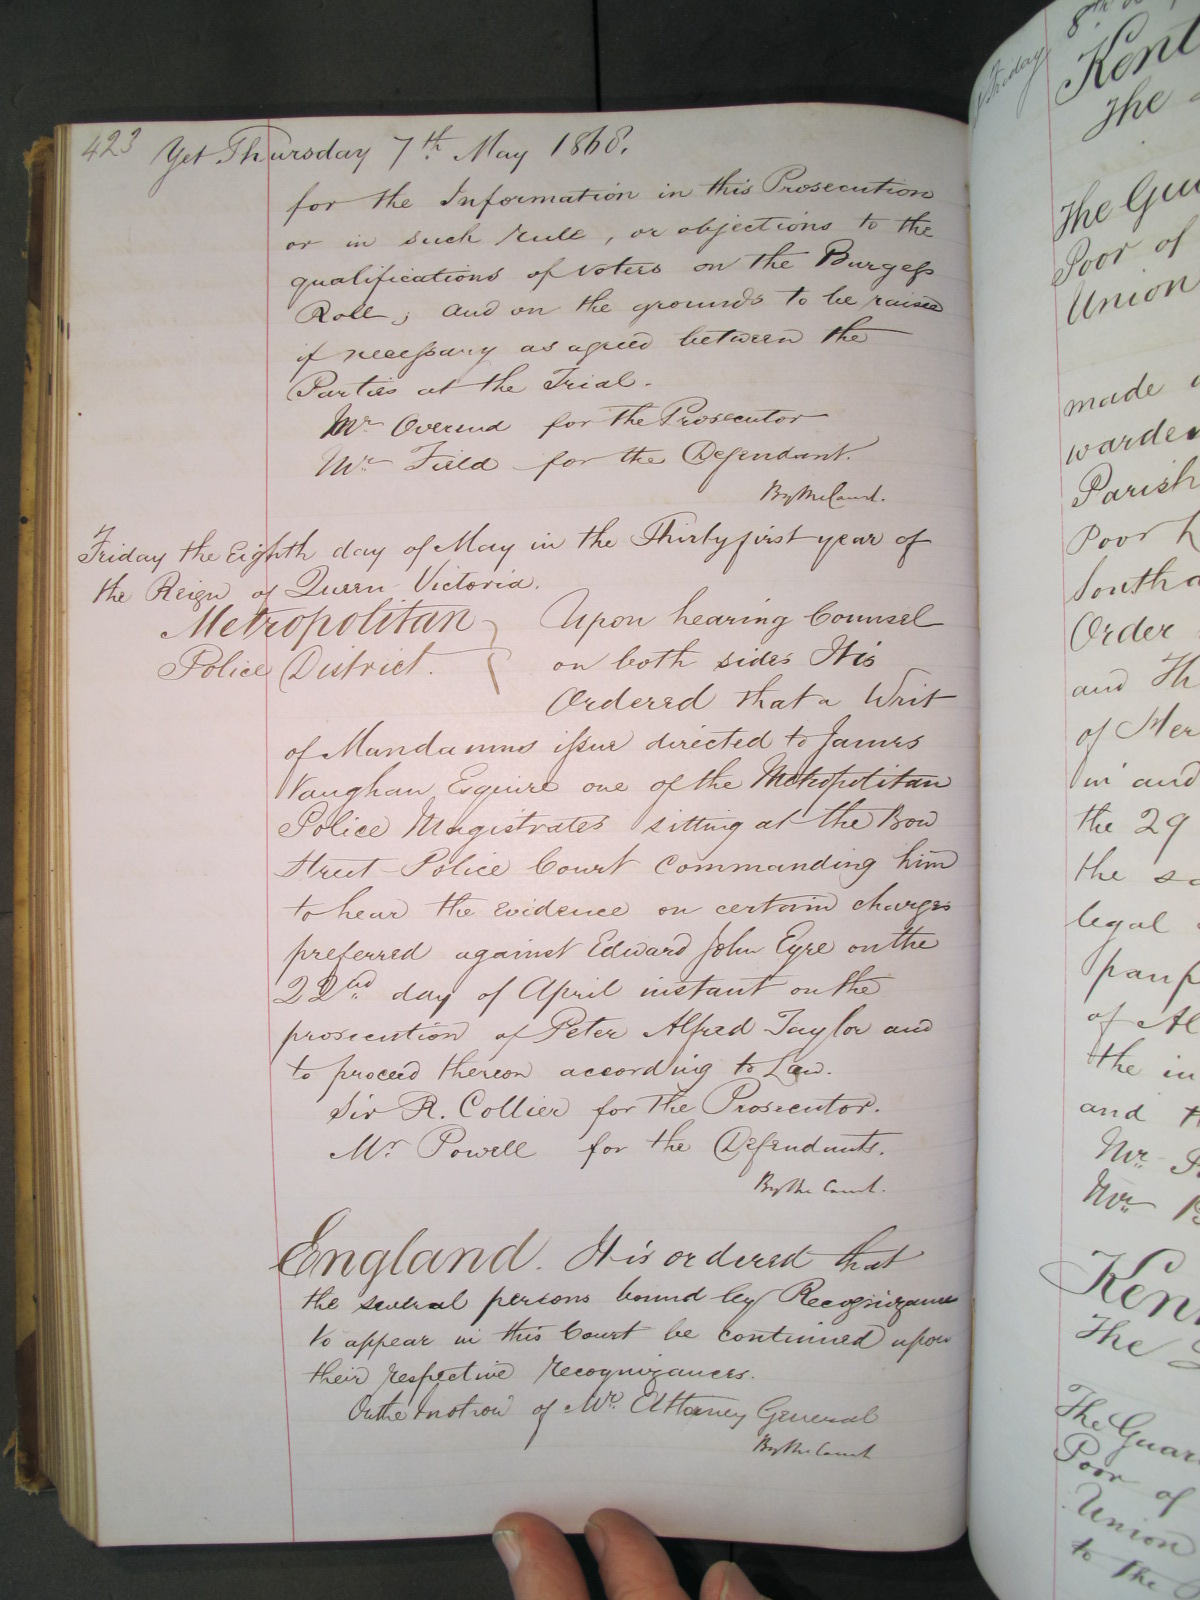 423 Yet Thursday 7th. May 1868.
for the Information in this Prosecution
or in such rule, or objections to the
qualifications of voters on the Burgess
Roll; and on the grounds to be raised
if necessary as agreed between the
Parties at the Trial.
Mr Overend for the Prosecutor
Mr Field for the Defendant.
By the Court.
Friday the Eighth day of May in the Thirty first year of
the Reign of Queen Victoria.
Metropolitan
Police District.
Upon hearing Counsel
on both sides It is
Ordered that a Writ
of Mandamus issue directed to James
Vaughan Esquire one of the Metropolitan
Police Magistrates sitting at the Bow
Street Police Court commanding him
to hear the evidence on certain charges
preferred against Edward John Eyre on the
22nd. day of April instant on the
prosecution of Peter Alfred Taylor and
to proceed thereon according to Law.
Sir R. Collier for the Prosecutor.
Mr. Powell for the Defendants.
By the Court.
England. It is ordered that
the several persons bound by Recognizance
to appear in this Court be continued upon
their respective recognizances.
On the motion of Mr. Attorney General
By the Court
Friday 8th
Kent
The
The
Poor of
Union
made
warden
Parish
Poor
South
Order
and Th
of Mer
in and
the 29
the sa
legal
paup
of Al
the in
and th
Mr
Mr
Ken
The
The Guar
Poor of
Union
to the